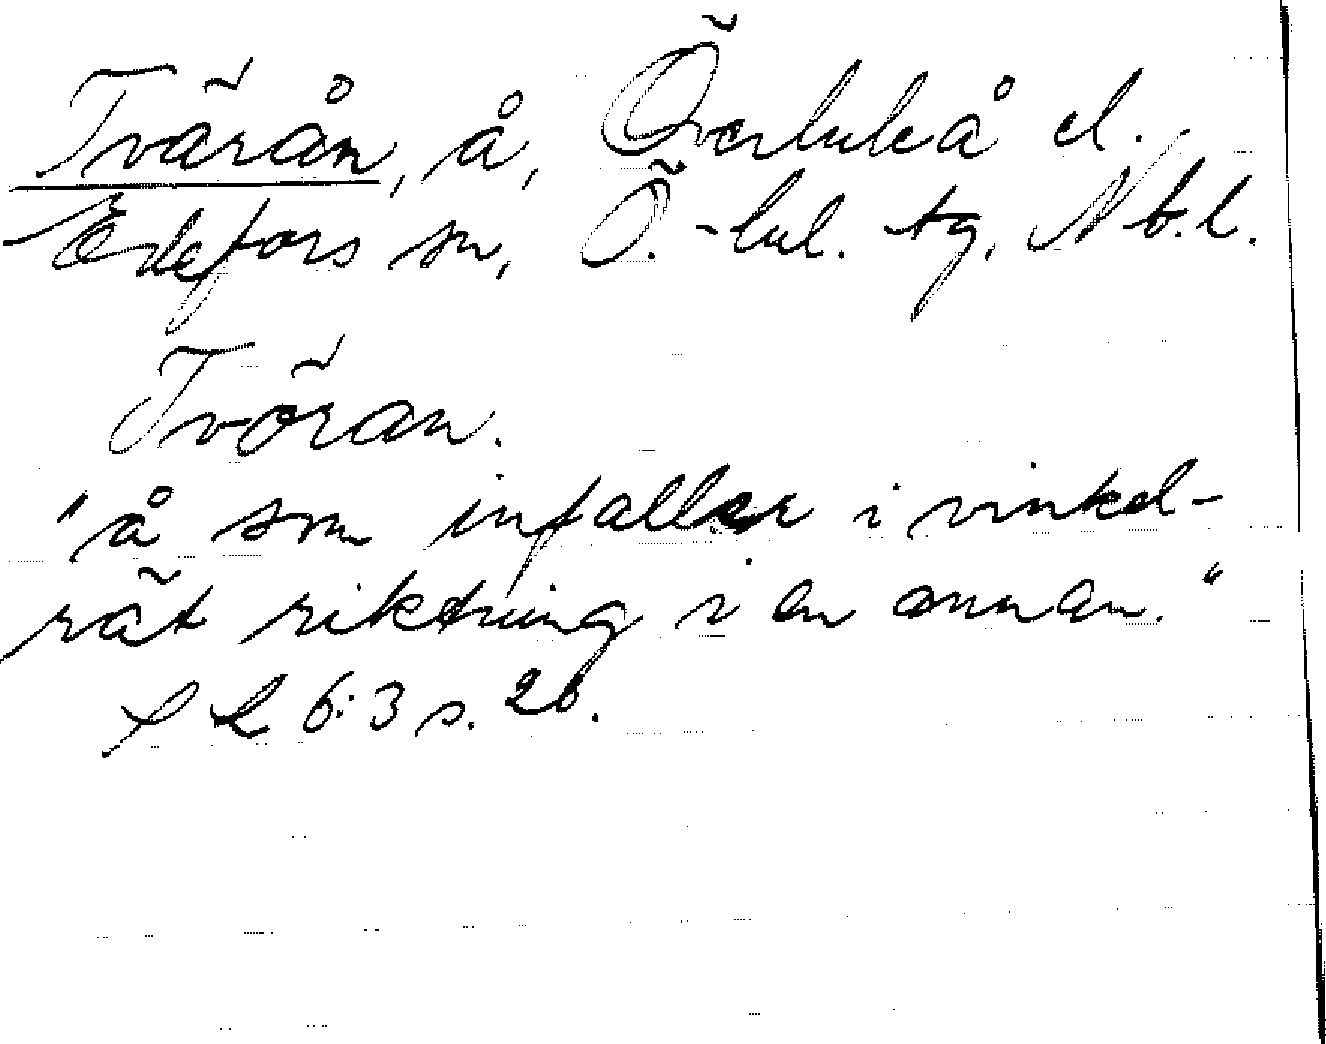 Tvärån, å, Överluleå el.
Edefors sn, Ö.-lul. tg, Nb.l.
Tvörån.
"å som infaller i vinkel-
rät riktning i en annan."
S L 6:3 s. 26.